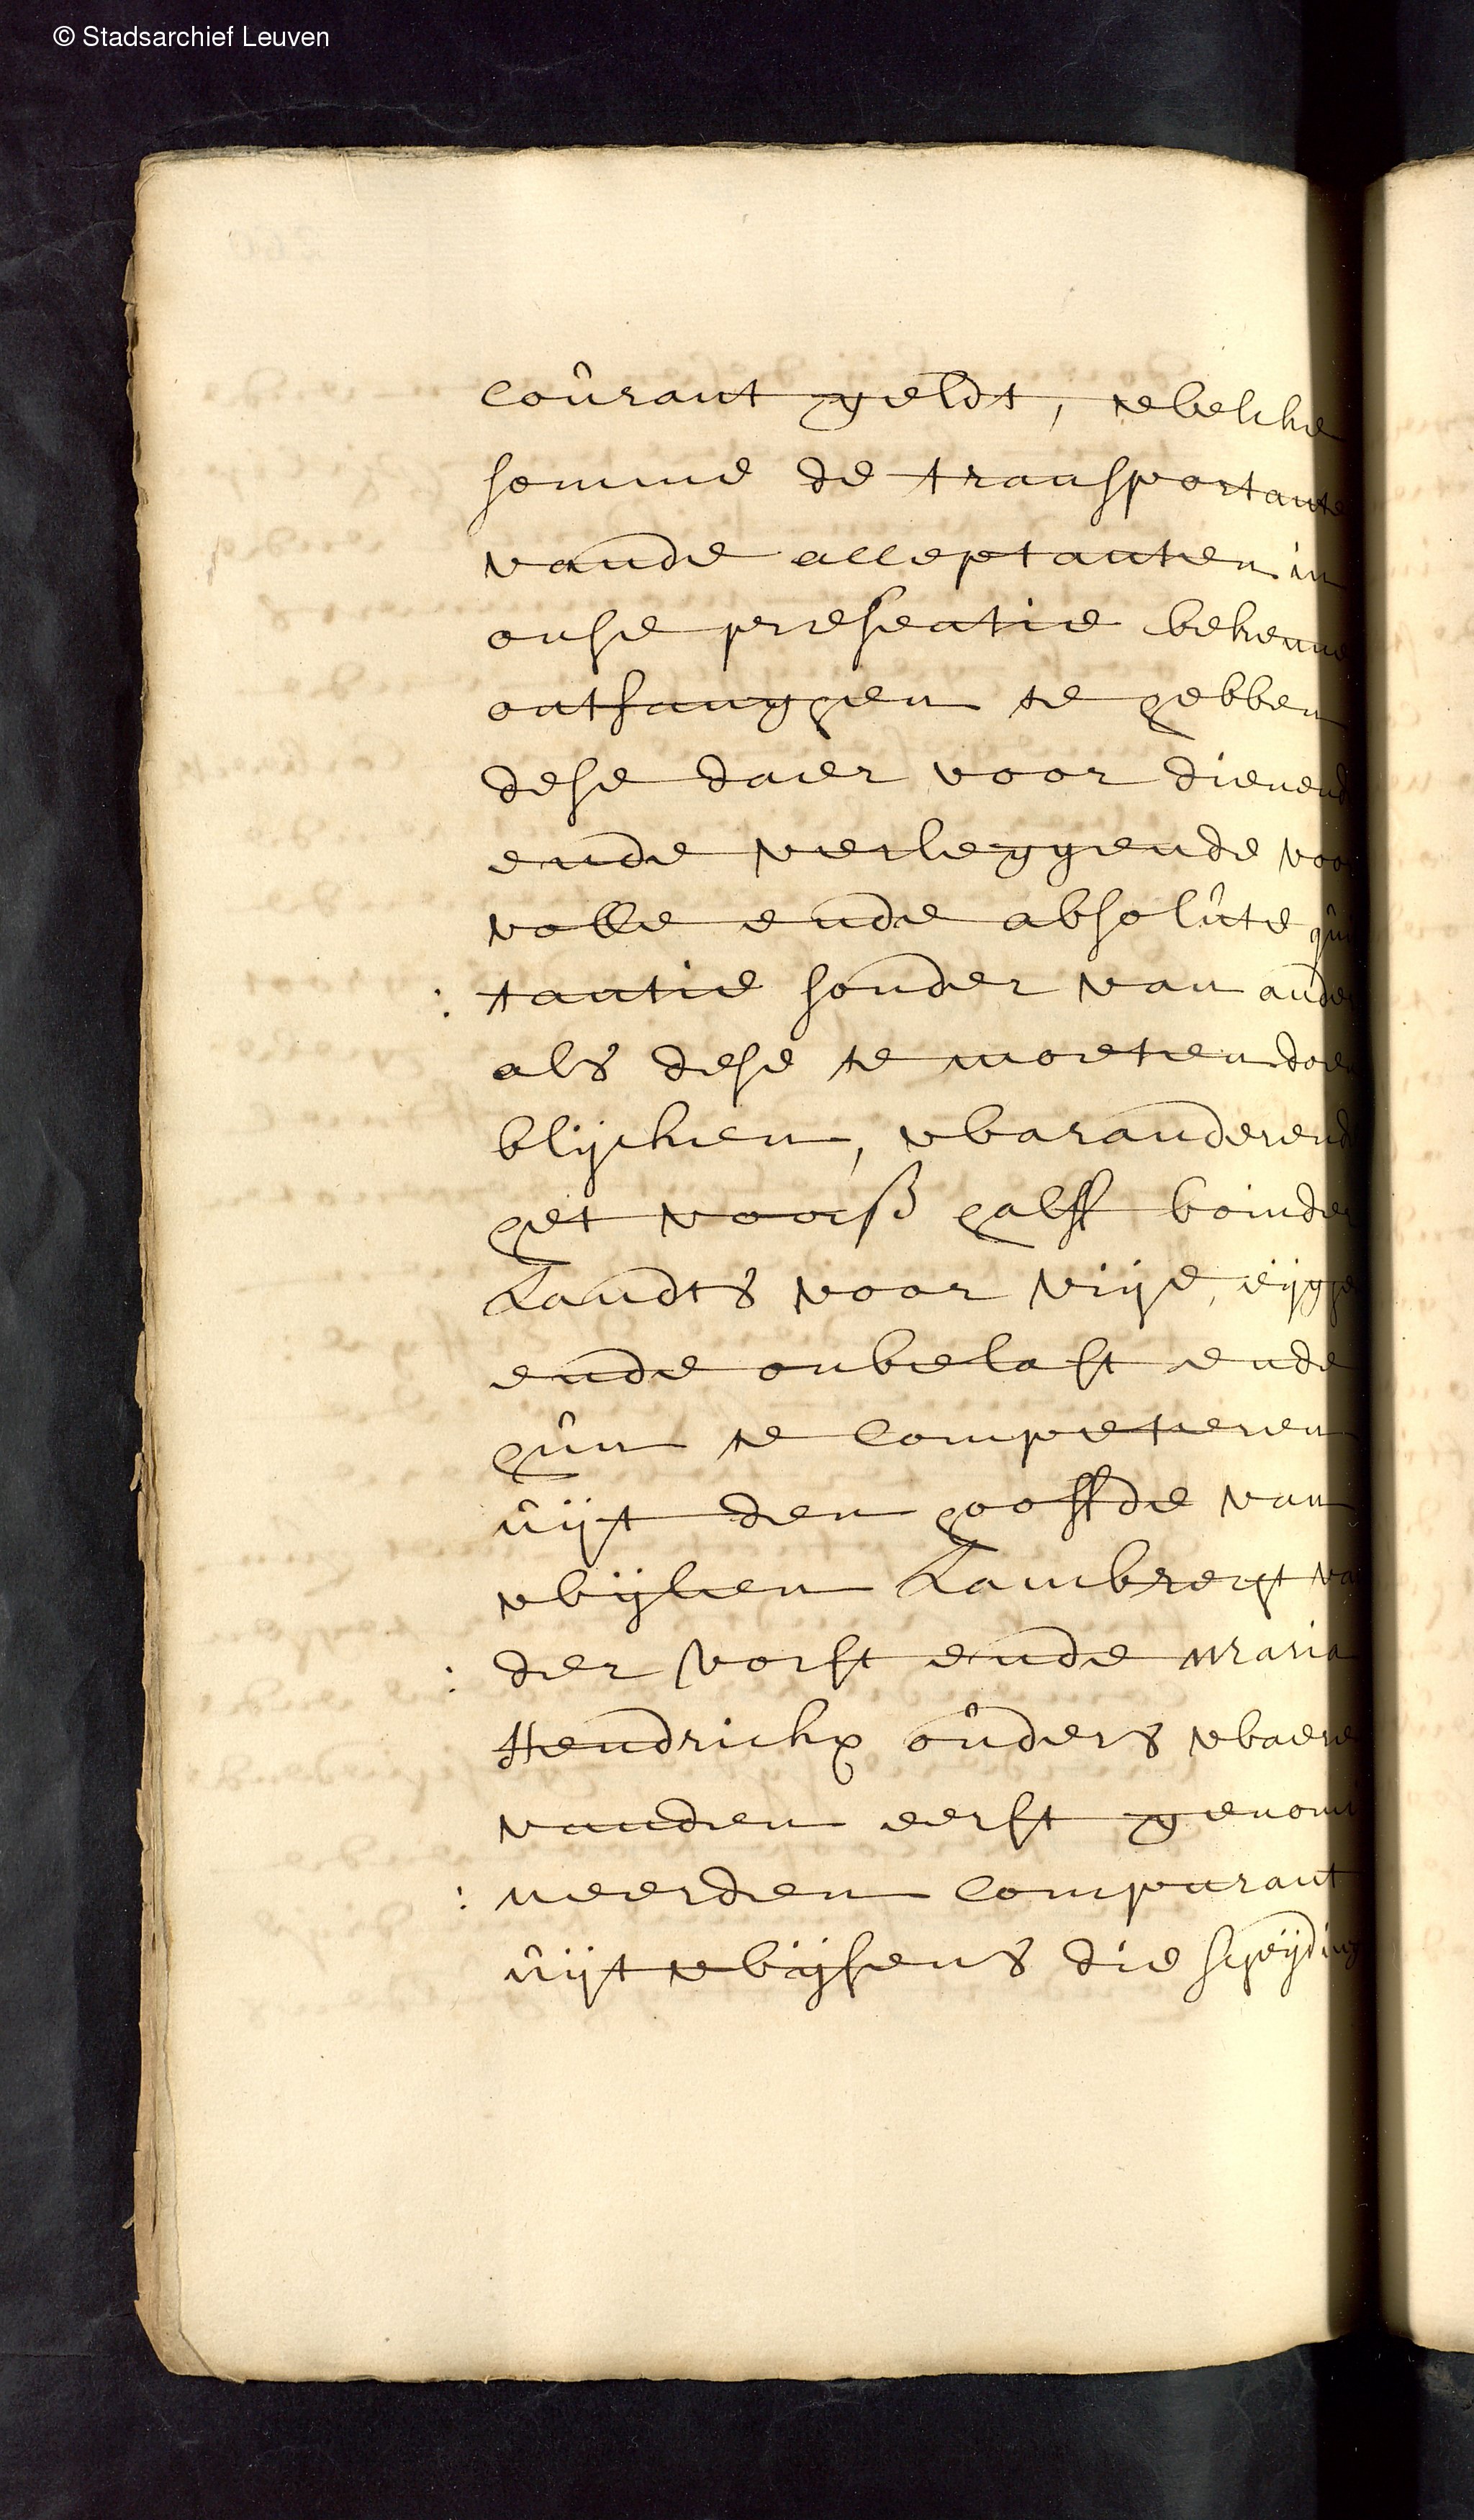 © Stadsarchief Leuven
coûrant geldt, welcke
somme de transportante
vande acceptanten in
onse presentie bekenne
ontfanghen te hebben
dese daer voor dienend
ende verleggende voo
volle ende absolûte qûi
: tantie sonder van ander
als dese te moeten doen
blijcken, waranderend
het voorß halff boinder
Landts voor vrije, eijghe
ende onbelast ende
hûn te competeren
ûijt den hooffde van
wijlen Lambrecht va
: der Vorst ende Maria
Hendrickx oûders waere
vanden eerst genomi
: neerden comparant
ûijtwijsens die scheijding